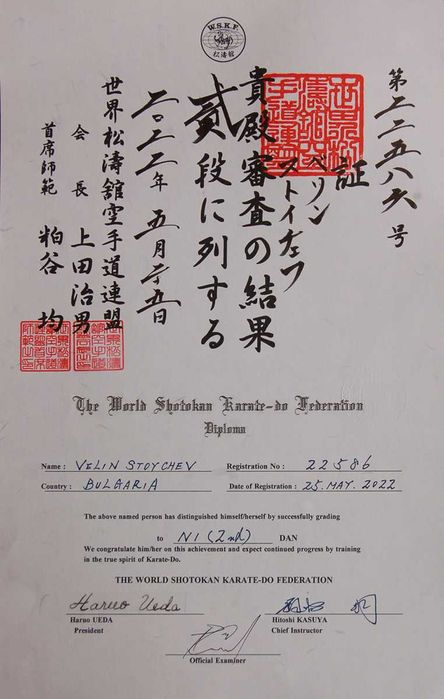 W.S.K.F.
松濤館
第二二五八六号
証
ベリン
ストイチェフ
貴殿審査の結果
貳段に列する
二〇二二年 五月二五日
世界松濤館空手道連盟
会長 上田治男
首席師範 粕谷 均
The World Shotokan Karate-do Federation
Diploma
Name : VELIN STOYCHEV Registration No : 22586
Country : BULGARIA Date of Registration : 25. MAY. 2022
The above named person has distinguished himself/herself by successfully grading
to NI (2nd) DAN
We congratulate him/her on this achievement and expect continued progress by training
in the true spirit of Karate-Do.
THE WORLD SHOTOKAN KARATE-DO FEDERATION
Haruo Ueda
Haruo UEDA Hitoshi KASUYA
President Chief Instructor
Official Examiner